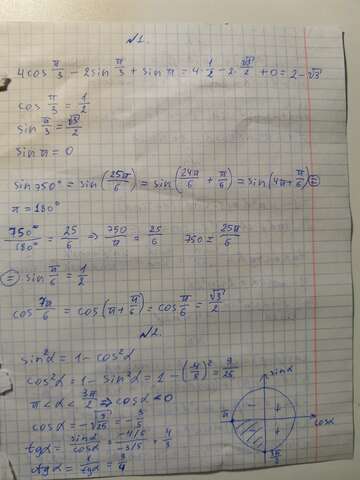 №1.
4cos π/3 - 2sin π/3 + sin π = 4·1/2 - 2·√3/2 + 0 = 2 - √3
cos π/3 = 1/2
sin π/3 = √3/2
sin π = 0
sin 750° = sin(25π/6) = sin(24π/6 + π/6) = sin(4π + π/6) =
π = 180°
750°/180° = 25/6 ⇒ 750/π = 25/6 750 = 25π/6
= sin π/6 = 1/2
cos 7π/6 = cos(π + π/6) = cos π/6 = √3/2
№2.
sin²α = 1 - cos²α
cos²α = 1 - sin²α = 1 - (4/5)² = 9/25
π < α < 3π/2 ⇒ cosα < 0
cosα = -√9/25 = -3/5
tgα = sinα/cosα = -4/5/-3/5 = 4/3
ctgα = 1/tgα = 3/4
sinα
- +
π
cosα
- +
3π/2